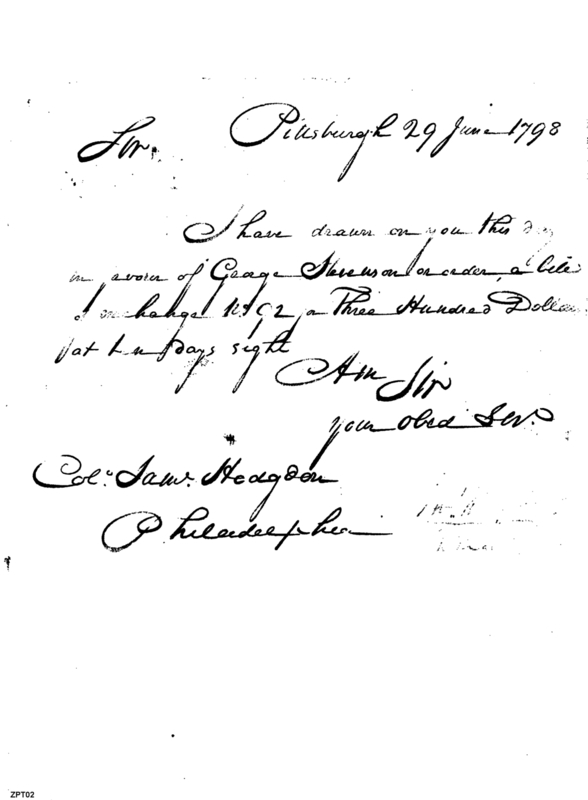 Pittsburgh 29 June 1798
Sir.
I have drawn on you this day
in favour of George Stevenson or order, a bill
of exchange for Three Hundred Dollars
at ten days sight
Am Sir
your obed Ser.
Col. Saml. Hodgdon
Philadelphia
ZPT02